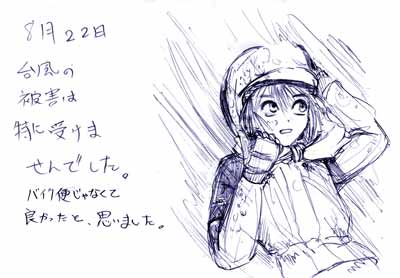 8月22日
台風の
被害は
特に受けま
せんでした。
バイク便じゃなくて
良かったと、思いました。